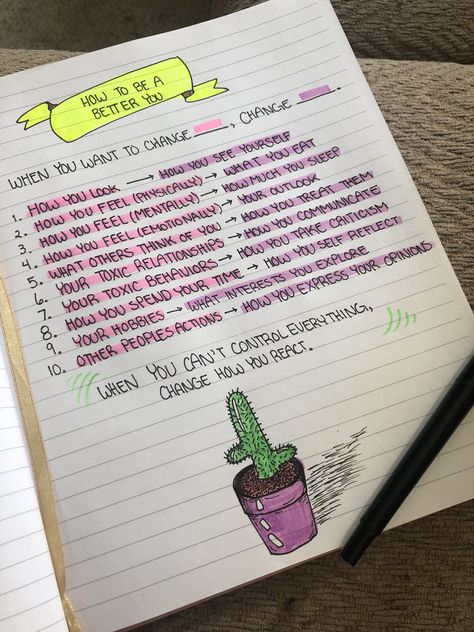 HOW TO BE A
BETTER YOU
WHEN YOU WANT TO CHANGE ____, CHANGE ____.
1. HOW YOU LOOK → HOW YOU SEE YOURSELF
2. HOW YOU FEEL (PHYSICALLY) → WHAT YOU EAT
3. HOW YOU FEEL (MENTALLY) → HOW MUCH YOU SLEEP
4. HOW YOU FEEL (EMOTIONALLY) → YOUR OUTLOOK
5. WHAT OTHERS THINK OF YOU → HOW YOU TREAT THEM
6. YOUR TOXIC RELATIONSHIPS → HOW YOU COMMUNICATE
7. YOUR TOXIC BEHAVIORS → HOW YOU TAKE CRITICISM
8. HOW YOU SPEND YOUR TIME → HOW YOU SELF REFLECT
9. YOUR HOBBIES → WHAT INTERESTS YOU EXPLORE
10. OTHER PEOPLES ACTIONS → HOW YOU EXPRESS YOUR OPINIONS
WHEN YOU CAN'T CONTROL EVERYTHING,
CHANGE HOW YOU REACT.